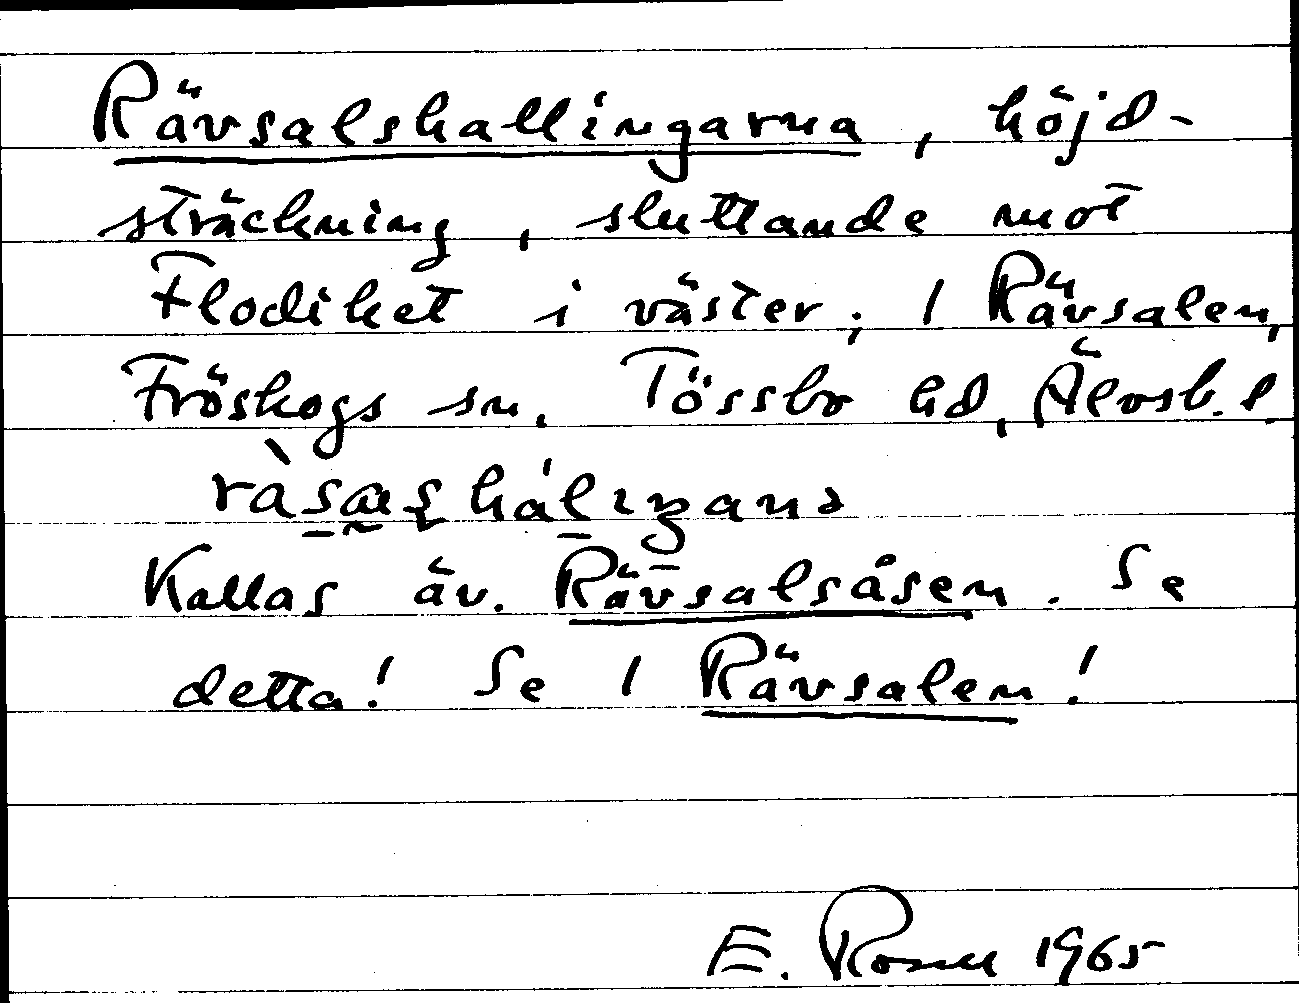 Rävsalshallingarna, höjd-
sträckning, sluttande mot
Flodiket i väster; 1 Rävsalen,
Fröskogs sn. Tössbo hd, Älvsb. l.
Kallas äv. Rävsalsåsen. Se
detta! Se 1 Rävsalen!
E. Rosell 1965